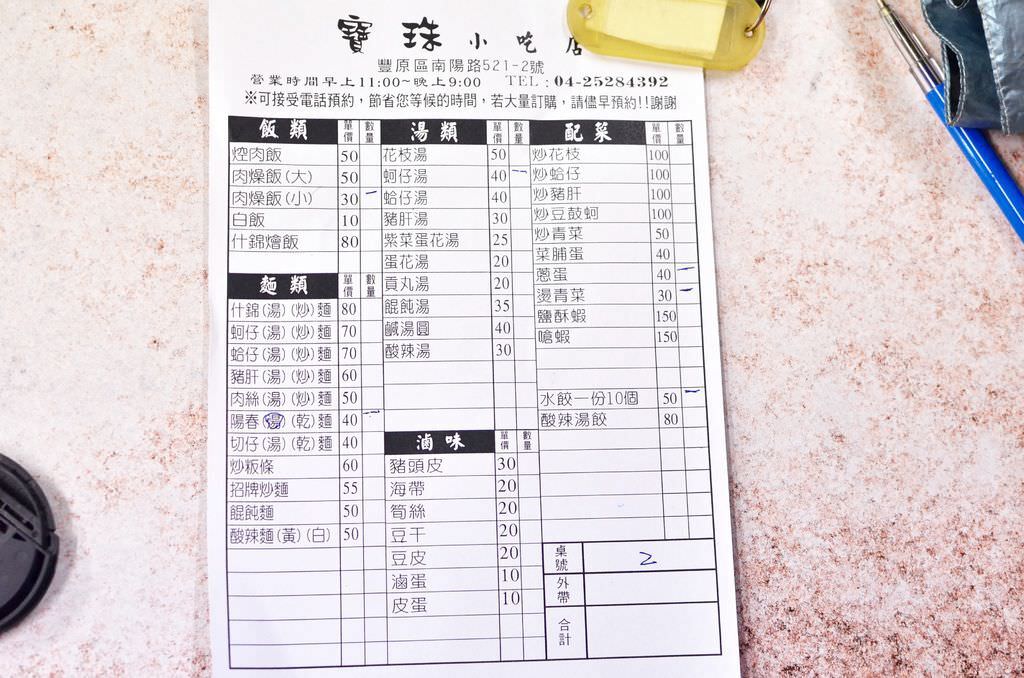 寶珠小吃店
豐原區南陽路521-2號
營業時間早上11:00~晚上9:00 TEL:04-25284392
※可接受電話預約,節省您等候的時間,若大量訂購,請儘早預約!!謝謝
飯類 單價 數量
焢肉飯 50
肉燥飯(大) 50
肉燥飯(小) 30 一
白飯 10
什錦燴飯 80
麵類 單價 數量
什錦(湯)(炒)麵 80
蚵仔(湯)(炒)麵 70
蛤仔(湯)(炒)麵 70
豬肝(湯)(炒)麵 60
肉絲(湯)(炒)麵 50
陽春(湯)(乾)麵 40 一
切仔(湯)(乾)麵 40
炒粄條 60
招牌炒麵 55
餛飩麵 50
酸辣麵(黃)(白) 50
湯類 單價 數量
花枝湯 50
蚵仔湯 40 一
蛤仔湯 40
豬肝湯 30
紫菜蛋花湯 25
蛋花湯 20
貢丸湯 20
餛飩湯 35
鹹湯圓 40
酸辣湯 30
滷味 單價 數量
豬頭皮 30
海帶 20
筍絲 20
豆干 20
豆皮 20
滷蛋 10
皮蛋 10
配菜 單價 數量
炒花枝 100
炒蛤仔 100
炒豬肝 100
炒豆鼓蚵 100
炒青菜 50
菜脯蛋 40
蔥蛋 40 一
燙青菜 30 一
鹽酥蝦 150
嗆蝦 150
水餃一份10個 50 一
酸辣湯餃 80
桌號 2
外帶
合計